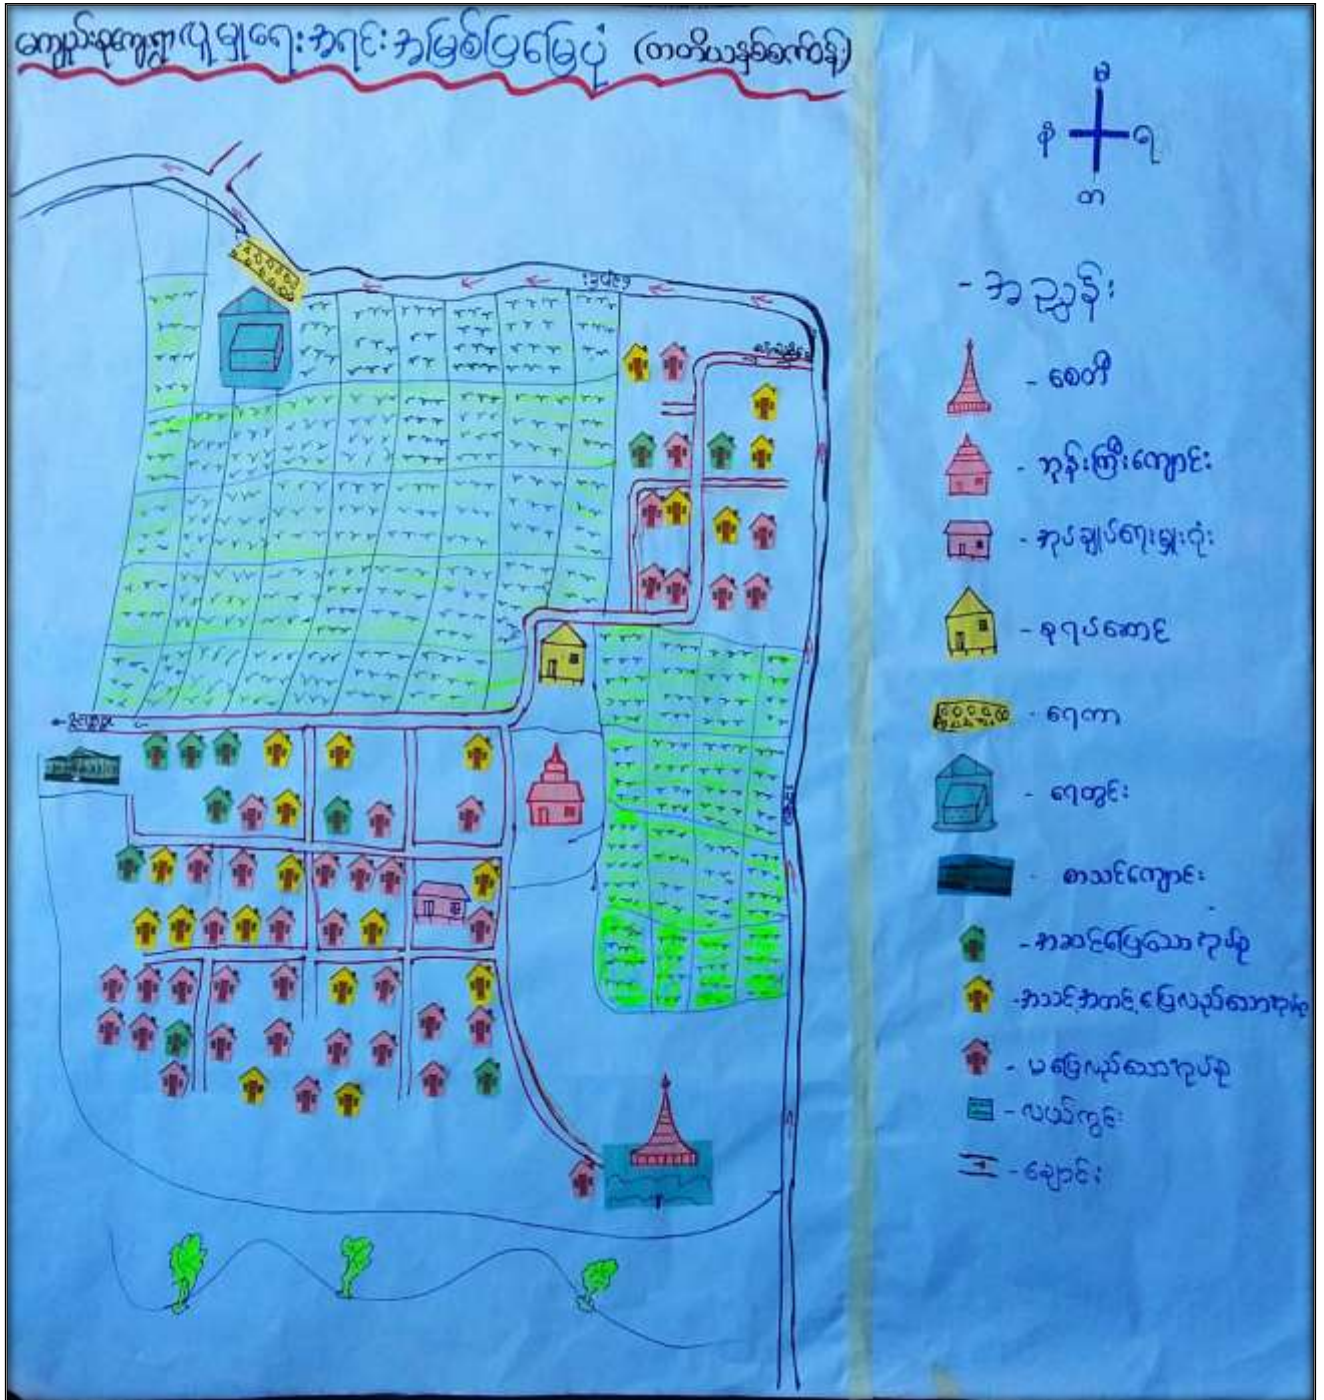 မကျည်းစုကျေးရွာ လူမှုရေးအရင်းအမြစ်ပြမြေပုံ (တတိယနှစ်စက်ဝန်)
မ
န
ရ
တ
- အညွှန်း
- စေတီ
- ဘုန်းကြီးကျောင်း
- အုပ်ချုပ်ရေးမှူးရုံး
- စုရပ်ဆောင်
- ရေကာ
- ရေတွင်း
- စာသင်ကျောင်း
- အဆင်ပြေသောအုပ်စု
- အသင့်အတင့်ပြေလည်သောအုပ်စု
- မပြေလည်သောအုပ်စု
- လယ်ကွင်း
- ချောင်း